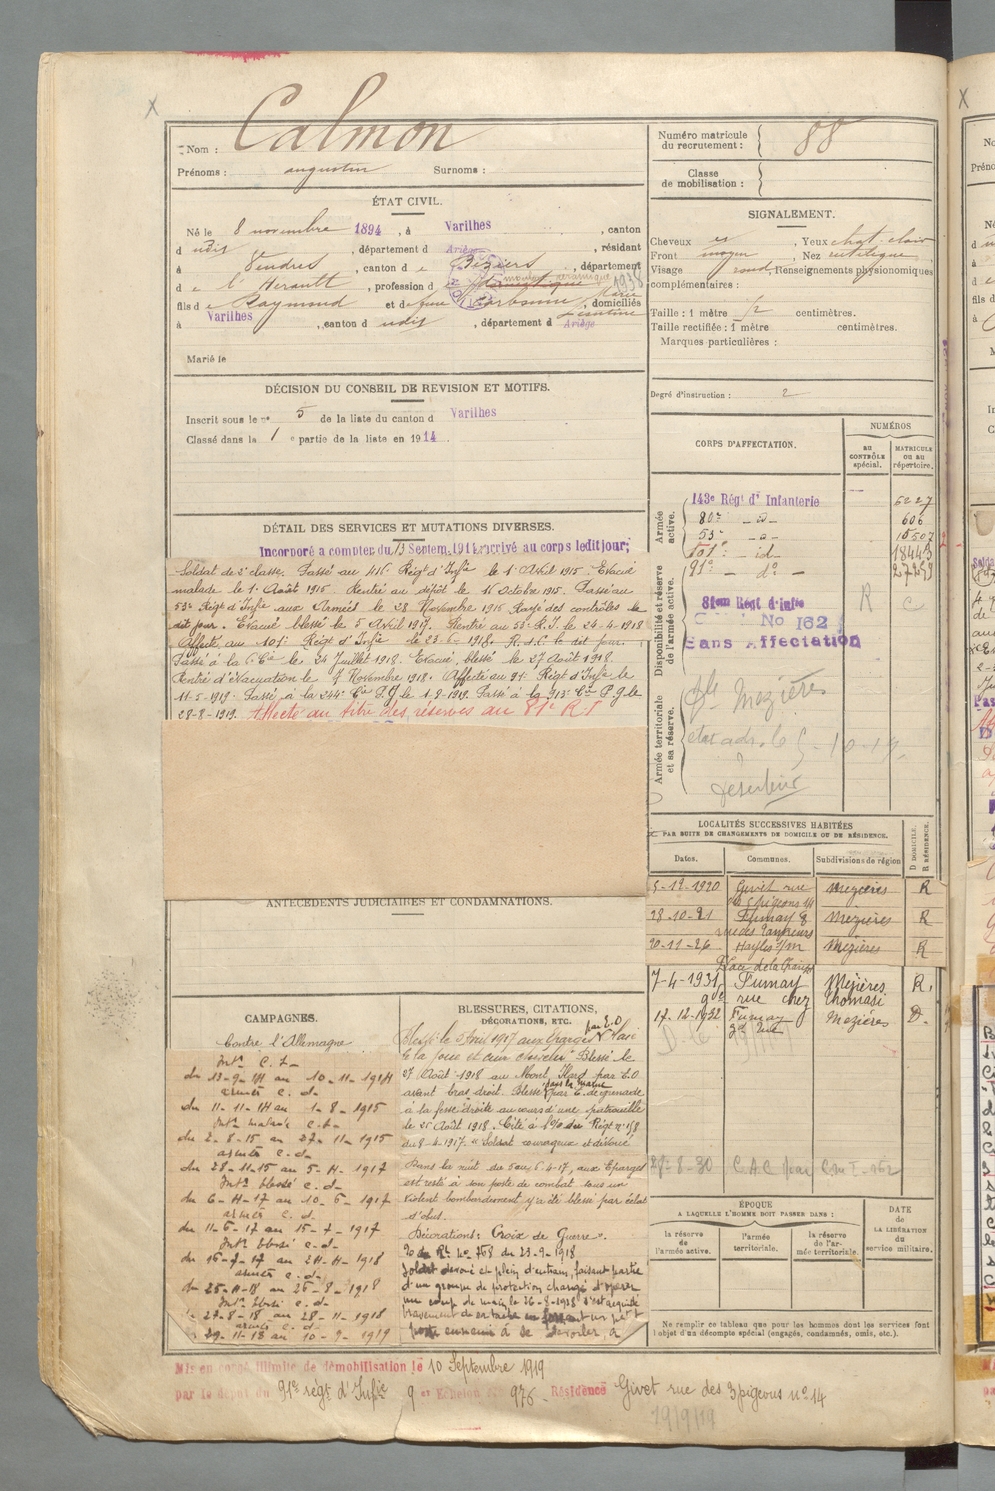 Nom : Calmon
Prénoms : augustin Surnoms :
Numéro matricule du recrutement : 88
Classe de mobilisation :
ÉTAT CIVIL.
Né le 8 novembre 1894, à Varilhes, canton
d udit, département d Ariège, résidant
à Vendres, canton d e Béziers, département
d e l'Hérault, profession d
fils d e Raymond et d e feue Narbonne Marie, domiciliés
à Varilhes, canton d udit, département d Ariège
Marié le
SIGNALEMENT.
Cheveux Yeux chat. clair
Front moyen, Nez
Visage rond, Renseignements physionomiques
complémentaires :
Taille : 1 mètre centimètres.
Taille rectifiée : 1 mètre centimètres.
Marques particulières :
Degré d'instruction : 2
DÉCISION DU CONSEIL DE REVISION ET MOTIFS.
Inscrit sous le n° 5 de la liste du canton d Varilhes
Classé dans la 1 e partie de la liste en 1914.
CORPS D'AFFECTATION.
NUMÉROS
au CONTRÔLE spécial.
MATRICULE ou au répertoire.
Armée active.
143e Régt d'Infanterie 5227
80e - d - 606
53e - d - 15507
101e - id - 18443
91e - d° -
Disponibilité et réserve de l'armée active.
81em Regt d'Infie
No 162 R C
Sans Affectation
Armée territoriale et sa réserve.
Mezières
5-10-19
DÉTAIL DES SERVICES ET MUTATIONS DIVERSES.
Incorporé a compter du 13 Septem. 1914, arrivé au corps ledit jour;
Soldat de 2e classe. Passé au 416e Régt d'Infie le 1er Avril 1915. Evacué
malade le 1er Août 1915. Rentré au dépôt le 16 Octobre 1915. Passé au
53e Régt d'Infie aux Armées le 28 Novembre 1915. Rayé des contrôles le
dit jour. Evacué blessé le 5 Avril 1917. Rentré au 53e R.I. le 24-4-1918
Affecté au 101e Régt d'Infie le 23-6-1918. R.d.C. le dit jour.
Passé à la 6e Cie le 24 Juillet 1918. Evacué, blessé le 27 Août 1918.
Rentré d'évacuation le 7 Novembre 1918. Affecté au 91e Régt d'Infie le
11-5-1919. Passé à la 244e Cie P.G le 1-8-1919. Passé à la 913e Cie P.G le
28-8-1919. Affecté au titre des réserves au 81e R I
ANTÉCÉDENTS JUDICIAIRES ET CONDAMNATIONS.
LOCALITÉS SUCCESSIVES HABITÉES
PAR SUITE DE CHANGEMENTS DE DOMICILE OU DE RÉSIDENCE.
Dates. Communes. Subdivisions de région D DOMICILE. R RÉSIDENCE.
5-12-1920 Givet rue des 3 pigeons 14 Mezières R
28-10-21 Fumay 8 rue des Tanneurs Mezières R
20-11-26 Haybes s/m Mezières R
7-4-1931 Fumay Mezières R.
rue chez Thomasi
17-12-1932 Fumay Mezières D.
8-30 C.A.C
CAMPAGNES.
Contre l'Allemagne
Intr C. S.
du 13-9-14 au 10-11-1914
armées c. d.
du 11-11-14 au 1-8-1915
Intr malade c.s.
du 2-8-15 au 27-11-1915
armées c.d.
du 28-11-15 au 5-4-1917
Intr blessé c.d.
du 6-4-17 au 10-6-1917
armées c.d.
du 11-6-17 au 15-7-1917
Intr blessé c.d.
du 16-7-17 au 24-4-1918
armées c.d.
du 25-4-18 au 26-8-1918
Intr blessé c.d.
du 27-8-18 au 28-11-1918
armées c.d.
29-11-18 au 10-9-1919
BLESSURES, CITATIONS,
DÉCORATIONS, ETC.
Blessé le 5 Avril 1917 aux Eparges par E.O
à la fosse et cuir chevelu. Blessé le
27 Août 1918 au Mont Hard par E.O
avant bras droit. Blessé par E. de grenade
à la fesse droite au cours d'une patrouille
le 25 Août 1918. Cité à l'O/ du Régt n° 158
du 8-4-1917. "Soldat courageux et dévoué
Dans la nuit du 5 au 6-4-17, aux Eparges
est resté à son poste de combat sous un
violent bombardement y a été blessé par éclat
d'obus.
Décorations: Croix de Guerre.
n° 768 du 23-9-1918
Soldat dévoué et plein d'entrain, faisant partie
d'un groupe de protection chargé d'opérer
un coup de main le 26-8-1918, s'est acquitté
bravement de sa tâche en forçant un petit
poste ennemi à se dévoiler, a
ÉPOQUE
A LAQUELLE L'HOMME DOIT PASSER DANS :
la réserve de l'armée active.
l'armée territoriale.
la réserve de l'armée territoriale.
DATE de LA LIBÉRATION du service militaire.
Ne remplir ce tableau que pour les hommes dont les services font
l'objet d'un décompte spécial (engagés, condamnés, omis, etc.).
Mis en congé illimité de démobilisation le 10 Septembre 1919
par le dépôt du 91e régt d'Infie 9e Echelon 976. Résidence Givet rue des 3 pigeons n° 14
19/9/19